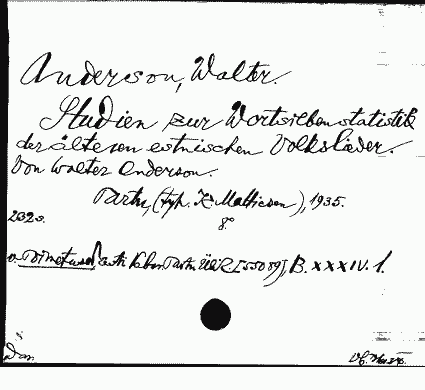 Anderson, Walter.
Studien zur Wortsilbenstatistik
der älteren estnischen Volkslieder.
Von Walter Anderson.
Tartu, (typ. K. Mattiesen), 1935.
8°
232 s.
Tartu B. XXXIV. 1.